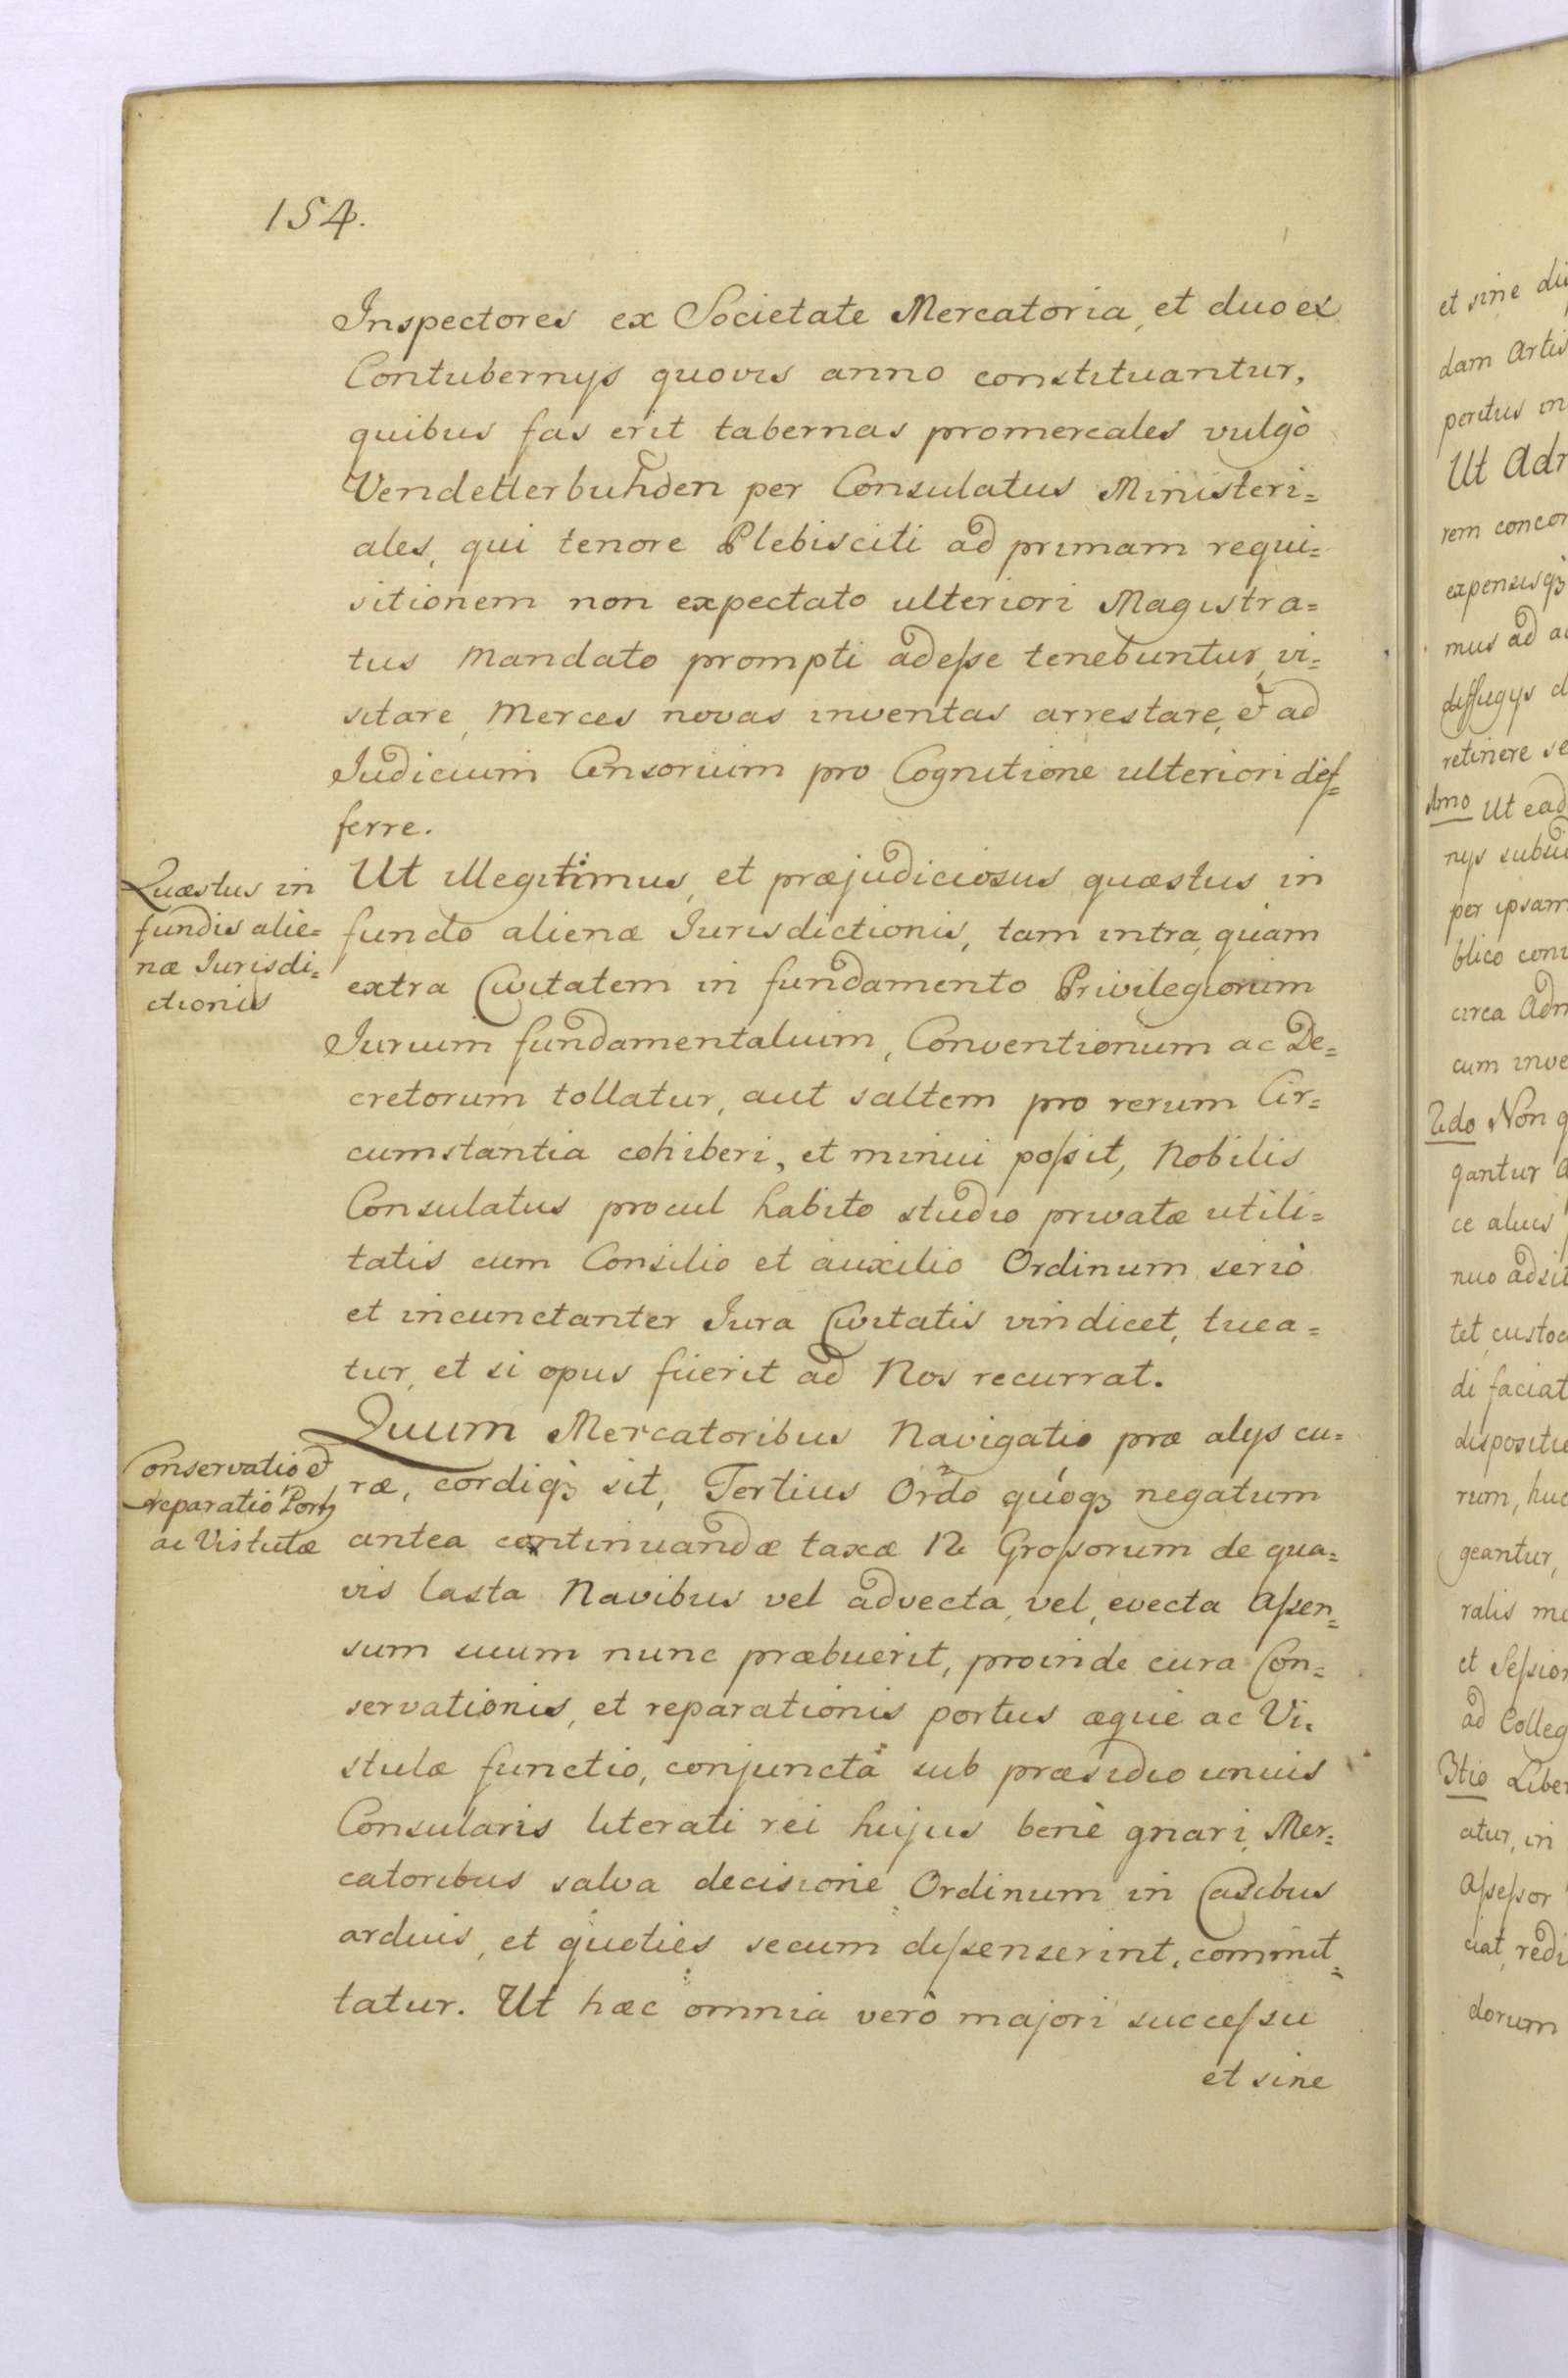 154.
Inspectores ex Societate Mercatoria, et duo ex
Contubernys quovis anno constituantur,
quibus fas erit tabernas promercales vulgò
Vendetterbuhden per Consulatus Ministeri=
ales, qui tenore Plebisciti ad primam requi=
sitionem non expectato ulteriori Magistra=
tus Mandato prompti adeſse tenebuntur, vi=
sitare, Merces novas inventas arrestare, et ad
Judicium Censorium pro Cognitione ulteriori def=
ferre.
Quæstus in
fundis alie=
næ Jurisdi=
ctionis
Ut illegitimus, et præjudiciosus quæstus in
fundo alienæ Jurisdictionis, tam intra, quàm
extra Civitatem in fundamento Privilegiorum
Jurium fundamentalium, Conventionum ac De=
cretorum tollatur, aut saltem pro rerum Cir=
cumstantia cohiberi, et minui poſsit, Nobilis
Consulatus procul habito studio privatæ utili=
tatis cum Consilio et auxilio Ordinum seriò
et incunctanter Jura Civitatis vindicet, tuea=
tur, et si opus fuerit ad Nos recurrat.
Conservatio et
reparatio Port9
ac Vistulæ
Quum Mercatoribus Navigatio præ alys cu=
ræ, cordiqꝫ sit, Tertius Ordo quóqꝫ negatum
antea continuandæ taxæ 12 Groſsorum de qua=
vis lasta Navibus vel advecta, vel, evecta Aſsen=
sum suum nunc præbuerit, proinde cura Con=
servationis, et reparationis portus æque ac Vi=
stulæ functio, conjuncta sub præsidio unius
Consularis literati rei hujus benè gnari, Mer=
catoribus salva decisione Ordinum in Casibus
arduis, et quoties secum diſsenserint, commit=
tatur. Ut hæc omnia verò majori succeſsu
et sine
et sine
dam Artis
peritus in
Ut Adr
rem concor
expensisqꝫ
mus ad
diffugys
retinere se
1mo Ut ead
nys
per ipsam
blico
circa Adm
cum inve
2do Non
gantur
ce alius
nuo adsit
tet, custo
di faciat
rum, huc
geantur,
ralis
et Seſsion
ad Colleg
3tio Liber
atur, in
Aſseſsor
ciat, redi
dorum